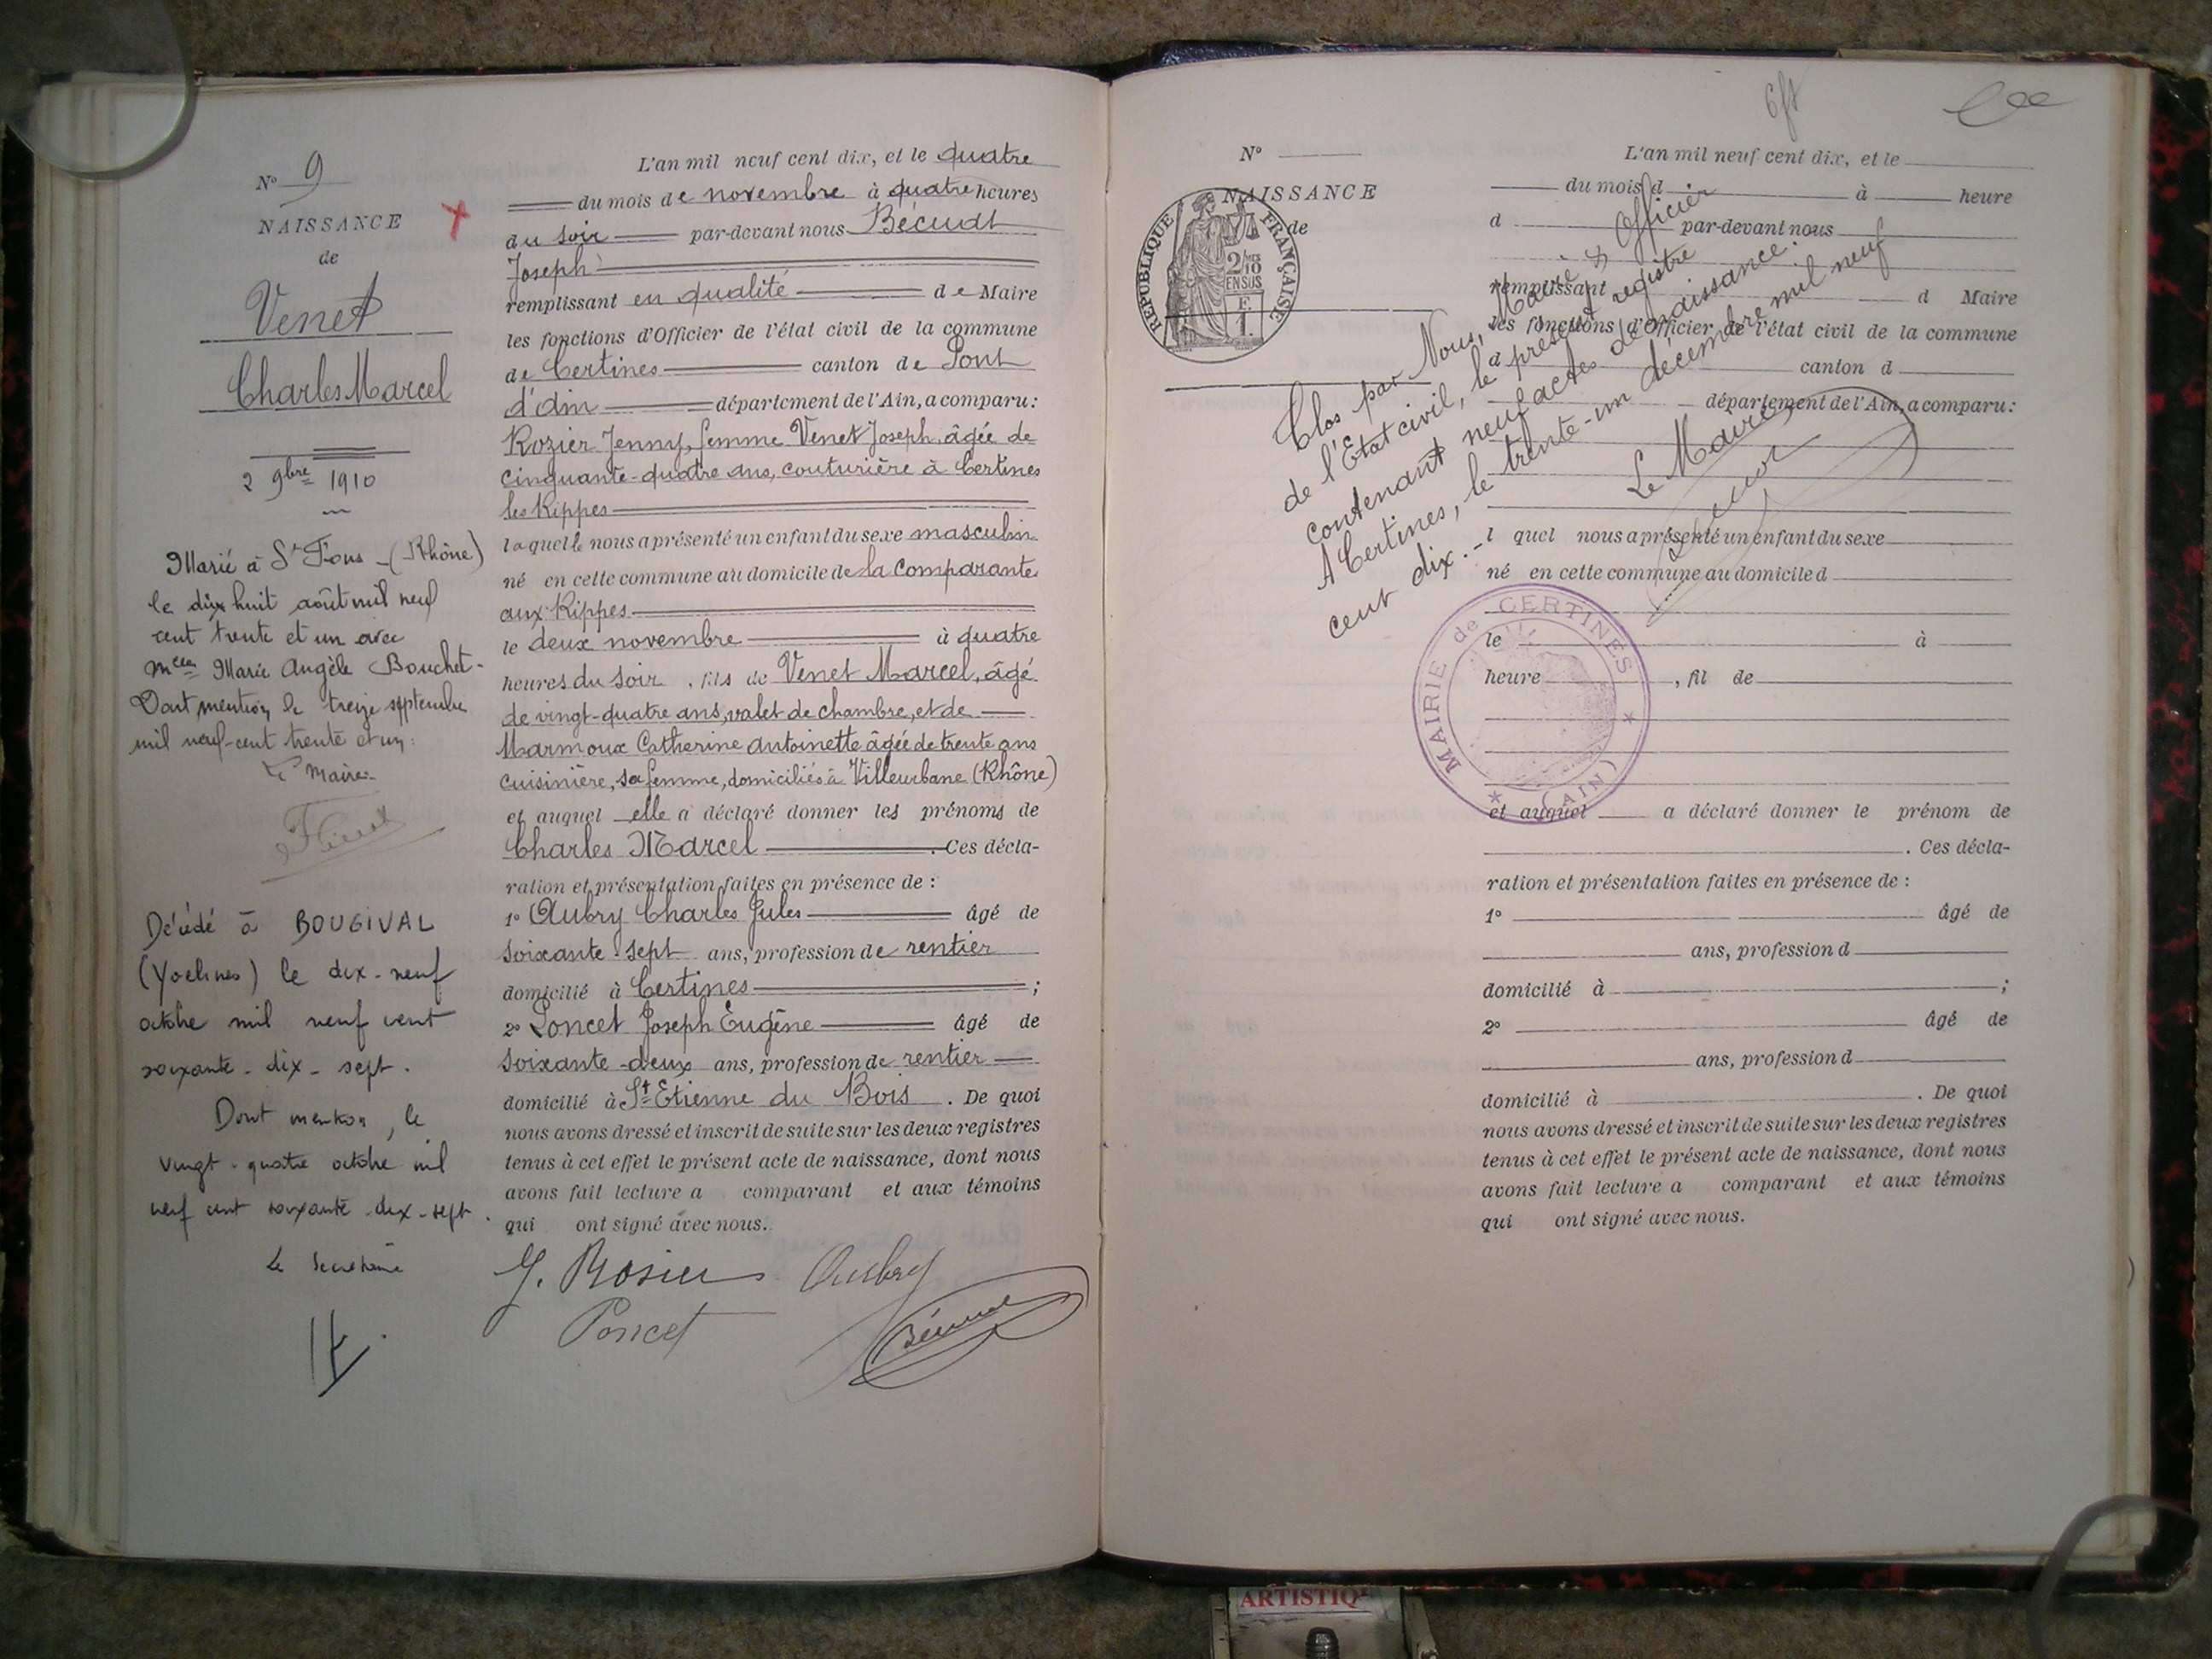 N° 9
NAISSANCE
de
Venet
Charles Marcel
2 9bre 1910
Marié à St Fons - (Rhône)
le dix huit août mil neuf
cent trente et un avec
Marie Angèle Bouchet -
Dont mention le treize septembre
mil neuf-cent trente et un.
Le Maire
Décédé à BOUGIVAL
(Yvelines) le dix-neuf
octobre mil neuf cent
soixante-dix-sept.
Dont mention, le
vingt-quatre octobre mil
neuf cent soixante-dix-sept.
Le Secrétaire
L'an mil neuf cent dix, et le quatre
du mois de novembre à quatre heures
du soir par-devant nous Bécudt
Joseph
remplissant en qualité de Maire
les fonctions d'Officier de l'état civil de la commune
de Certines canton de Pont
d'Ain département de l'Ain, a comparu :
Rozier Jenny, femme Venet Joseph, âgée de
cinquante-quatre ans, couturière à Certines
les Rippes
laquelle nous a présenté un enfant du sexe masculin
né en cette commune au domicile de la comparante
aux Rippes
le deux novembre à quatre
heures du soir, fils de Venet Marcel, âgé
de vingt-quatre ans, valet de chambre, et de
Marmoux Catherine Antoinette âgée de trente ans
cuisinière, sa femme, domiciliés à Villeurbane (Rhône)
et auquel elle a déclaré donner les prénoms de
Charles Marcel . Ces décla-
ration et présentation faites en présence de :
1° Aubry Charles Jules âgé de
soixante sept ans, profession de rentier
domicilié à Certines ;
2° Poncet Joseph Eugène âgé de
soixante-deux ans, profession de rentier
domicilié à St Etienne du Bois . De quoi
nous avons dressé et inscrit de suite sur les deux registres
tenus à cet effet le présent acte de naissance, dont nous
avons fait lecture a comparant et aux témoins
qui ont signé avec nous.
J. Rosier Aubry
Poncet
6ft
N°
NAISSANCE
de
RÉPUBLIQUE FRANÇAISE
2/10
EN SUS
F.
1.
L'an mil neuf cent dix, et le
du mois d à heure
d par-devant nous
remplissant d Maire
les fonctions d'Officier de l'état civil de la commune
d canton d
département de l'Ain, a comparu :
Clos par Nous, Maire & Officier
de l'Etat civil, le présent registre
contenant neuf actes de naissance.
A Certines, le trente-un décembre mil neuf
cent dix.-
Le Maire
l quel nous a présenté un enfant du sexe
né en cette commune au domicile d
MAIRIE de CERTINES
(AIN)
le à
heure , fil de
et auquel a déclaré donner le prénom de
. Ces décla-
ration et présentation faites en présence de :
1° âgé de
ans, profession d
domicilié à ;
2° âgé de
ans, profession d
domicilié à . De quoi
nous avons dressé et inscrit de suite sur les deux registres
tenus à cet effet le présent acte de naissance, dont nous
avons fait lecture a comparant et aux témoins
qui ont signé avec nous.
ARTISTIQ